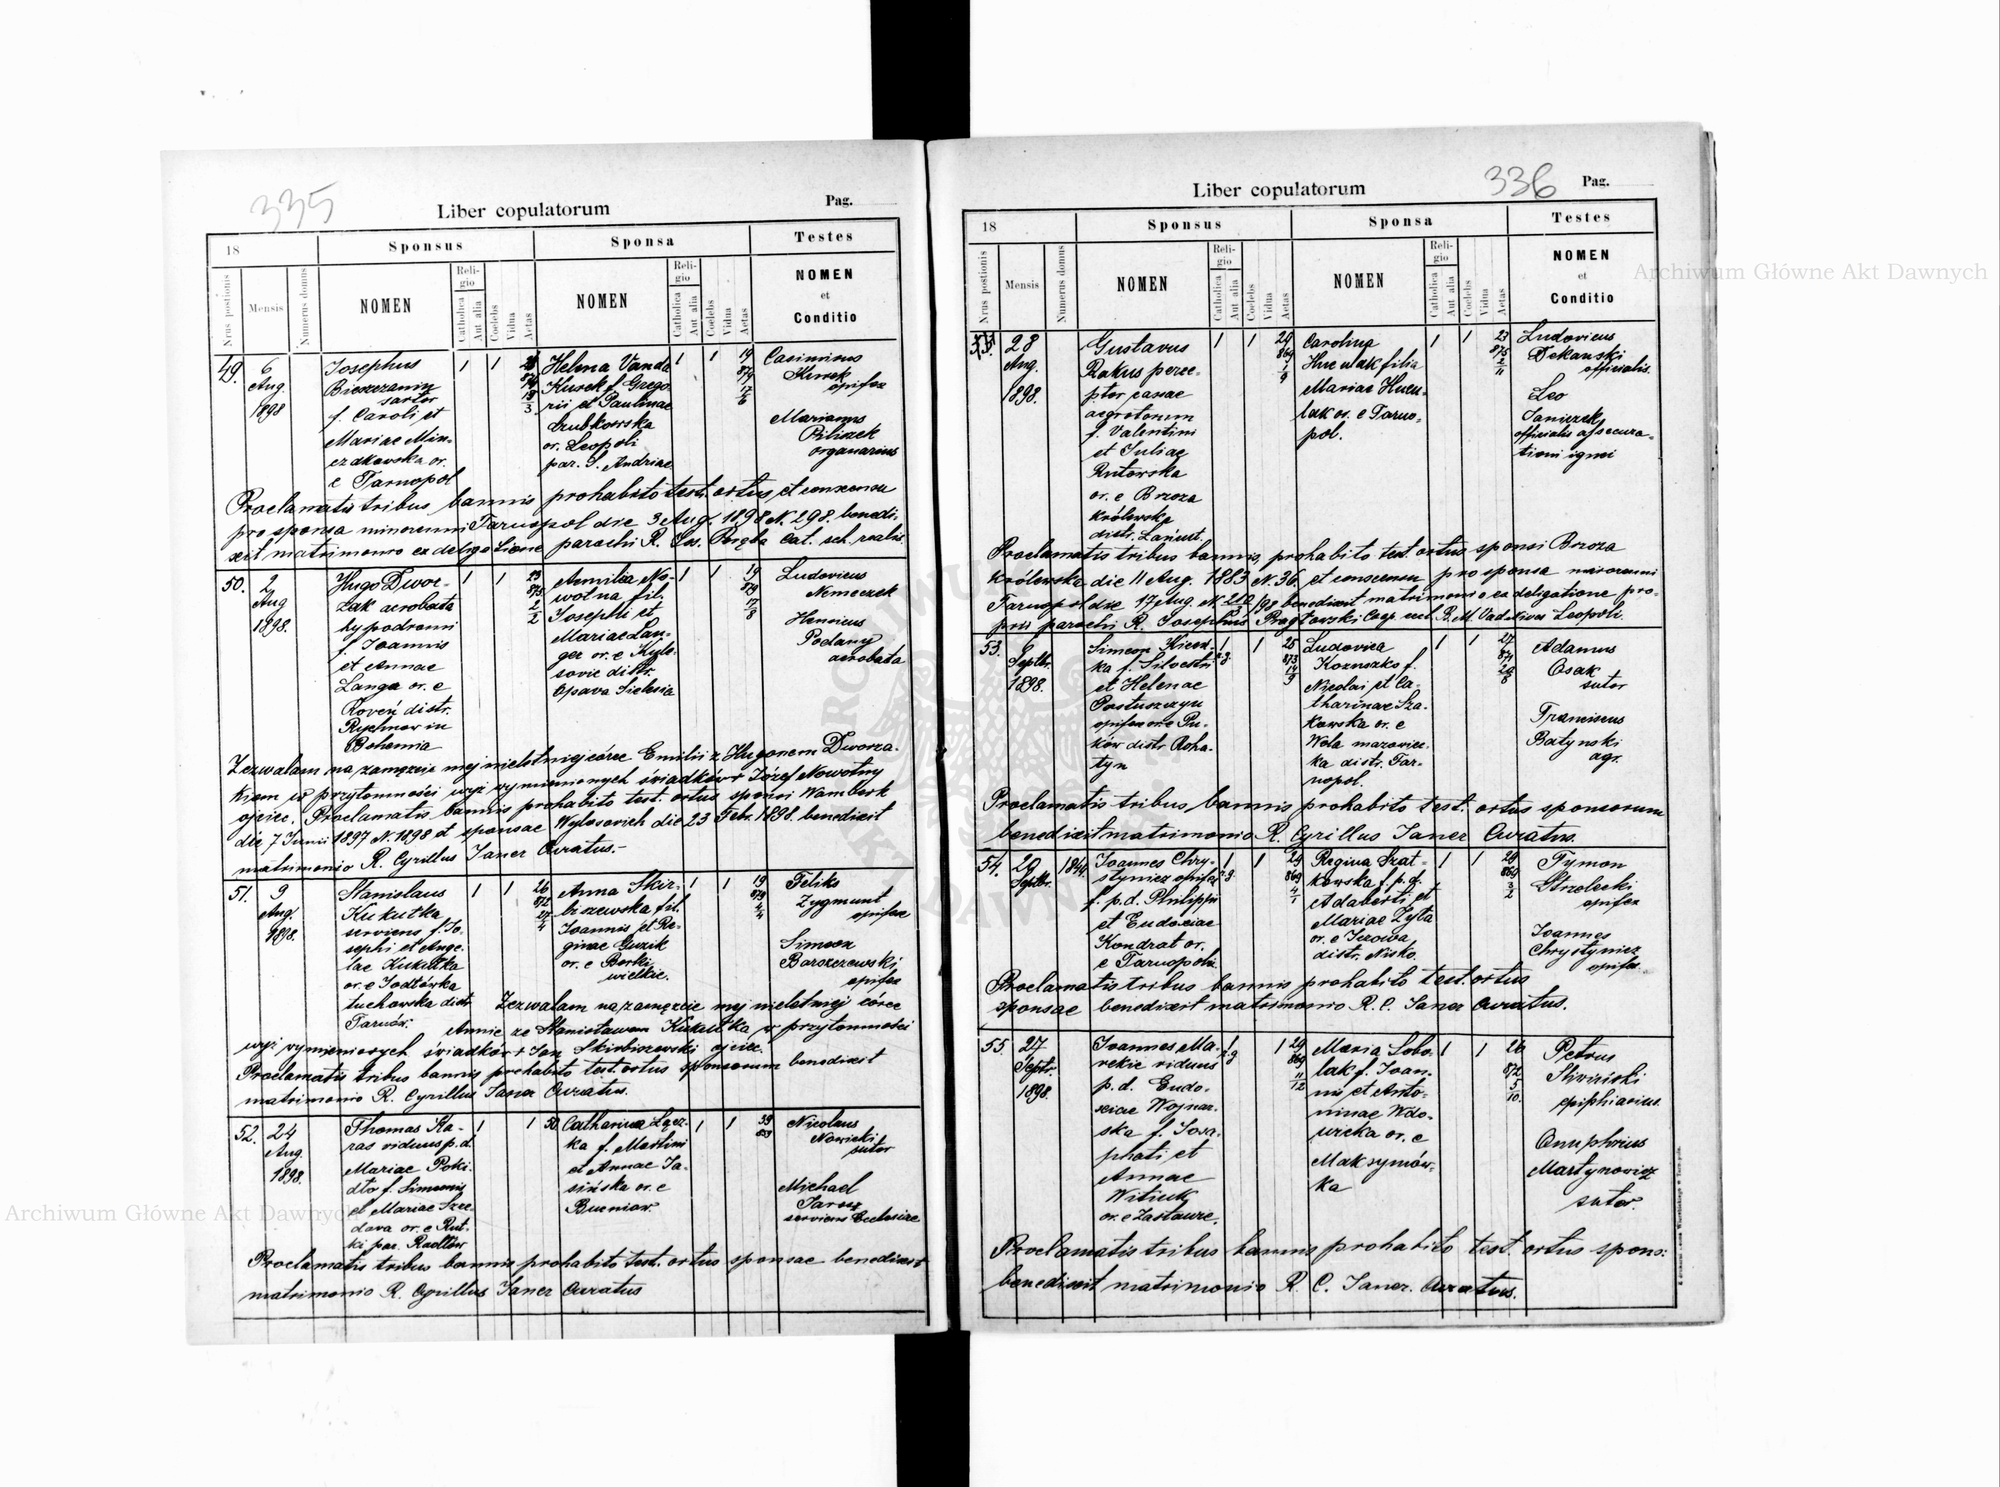 335
Liber copulatorum
Pag.
18
Sponsus
Sponsa
Testes
Nrus postionis
Mensis
Numerus domus
NOMEN
Religio
Catholica
Aut alia
Coelebs
Vidua
Aetas
NOMEN
Religio
Catholica
Aut alia
Coelebs
Vidua
Aetas
NOMEN
et
Conditio
49.
6
Aug.
1898
Josephus
sartor
f. Caroli et
Mariae
or.
e Tarnopol
1
1
Helena Vanda
Kusek f. Grego-
rii et Paulinae
or. Leopoli
par. S. Andreae
1
1
19
879
Casimirus
Kusek
opifex
Marianus
Piliszek
organarius
Proclamatis tribus bannis prohabito test. ortus, et consensu
pro sponsa minorenni Tarnopol die 3 Aug. 1898 N. 298. benedi-
xit matrimonio ex delegatione parochi R. Poręba Cat. sch. realis
50.
2
Aug
1898.
Hugo Dwor-
zak acrobata
hypodromi
f. Joannis
et Annae
Langa or. e
Roveń distr.
Rychnow in
Bohemia
1
1
23
875
2
2
Aemilia No-
wotna fil.
Josephi et
Mariae Lan-
ger or. e
distr.
Opava Silesia
1
1
19
879
17
8
Ludovicus
Nemeczek
Henricus
Podany
acrobata
Zezwalam na zamęzcie mej nieletniej córce Emilii z Hugonem Dworza-
kiem w przytomności wyż wymienionych świadków + Józef Nowotny
ojciec. Proclamatis bannis prohabito test. ortus sponsi Wamberk
die 7 Junii 1897 N. 1898 et sponsae die 23 Febr. 1898. benedixit
matrimonio R. Cyrillus Janer Curatus.-
51.
9
Aug.
1898.
Stanislaus
Kukułka
serviens f. Jo-
sephi et Ange-
lae Kukułka
or. e Jodłówka
tuchowska distr
Tarnów.
1
1
26
872
27
4
Anna Skir-
biszewska fil.
Joannis et Re-
ginae Guzik
or. e Borki
wielkie.
1
1
19
879
4
4
Feliks
Zygmunt
opifex
Simeon
Barszczewski
opifex
Zezwalam na zamęzcie mej nieletniej córce
Annie ze Stanisławem Kukułka w przytomności
wyż wymienionych świadków + Jan Skirbiszewski ojciec.
Proclamatis tribus bannis prohabito test. ortus sponsorum benedixit
matrimonio R. Cyrillus Janer Curatus.
52.
24
Aug.
1898.
Thomas Ka-
ras viduus p. d.
Mariae
f. Simonis
et Mariae
or. e Rut-
ki par. Radłów
1
1
50
Catharina Łącz-
ka f. Martini
et Annae Ja-
sińska or. e
Bucniow.
1
1
39
859
Nicolaus
Nowicki
sutor
Michael
Jarosz
serviens Ecclesiae
Proclamatis tribus bannis prohabito test. ortus sponsae benedixit
matrimonio R. Cyrillus Janer Curatus
336
Liber copulatorum
Pag.
18
Sponsus
Sponsa
Testes
Nrus postionis
Mensis
Numerus domus
NOMEN
Religio
Catholica
Aut alia
Coelebs
Vidua
Aetas
NOMEN
Religio
Catholica
Aut alia
Coelebs
Vidua
Aetas
NOMEN
et
Conditio
28
Aug.
1898.
Gustavus
Rakus perce-
ptor cassae
aegrotorum
f. Valentini
et Juliae
Rutowska
or. e Brzoza
królewska
distr. Łańcut.
1
1
29
869
1
9
Carolina
Hucułak filia
Mariae Hucu-
lak or. e Tarno-
pol.
1
1
23
875
2
11
Ludovicus
Dekański
officialis.
Leo
Janiczek
officialis assecura-
tioni ignei
Proclamatis tribus bannis, prohabito test. ortus sponsi Brzoza
Królewska die 11 Aug. 1883 N. 36. et consensu pro sponsa minorenni
Tarnopol die 17 Aug. N. 210/98 benedixit matrimonio ex delegatione pro-
prii parochi R. Josephus Pragłowski Coop. eccl. B. M. V. ad Nives Leopoli.
53.
6
Septbr.
1898.
Simeon
ka f. Silvestri
et Helenae
Postuszczyn
opifex or. e Pu-
ków distr Roha-
tyn
1
r.g.
1
25
873
14
9
Ludovica
Kozuszko f.
Nicolai et Ca-
tharinae Sza-
kowska or. e
Wola mazowiec-
ka distr. Tar-
nopol.
1
1
27
871
29
8
Adamus
Osak
sutor
Franciscus
Batynski
agr.
Proclamatis tribus bannis prohabito test. ortus sponsorum
benedixit matrimonio R. Cyrillus Janer Curatus.
54.
29
Septbr.
1844.
Joannes Chry-
stynicz opifex
f. p. d. Philippi
et Eudoxiae
Kondrat or.
e Tarnopoli.
1
r.g.
1
29
869
4
1
Regina Szat-
kowska f. p. d.
Adalberti et
Mariae Zyła
or. e Jezowa
distr. Nisko.
1
1
29
869
3
2
Tymon
Strzelecki
opifex
Joannes
Chrystynicz
opifex.
Proclamatis tribus bannis prohabito test. ortus
sponsae benedixit matrimonio R. C. Janer Curatus.
55.
27
Septr.
1898.
Joannes Ma-
reckie viduus
p. d. Eudo-
xiae Wojnar-
ska f. Josa-
phati et
Annae
Witiuk
or. e Zastawie.
1
r.g.
1
29
869
11
12
Maria Sobo-
lak f. Joan-
nis et Anto-
ninae Wdo-
wicka or. e
Maksymów-
ka
1
1
26
872
5
10.
Petrus
Śliwiński
ephiphiarius.
Onuphrius
Martynowicz
sutor.
Proclamatis tribus bannis prohabito test. ortus spons:
benedixit matrimonio R. C. Janer. Curatus.
Archiwum Główne Akt Dawnych
Archiwum Główne Akt Dawnych